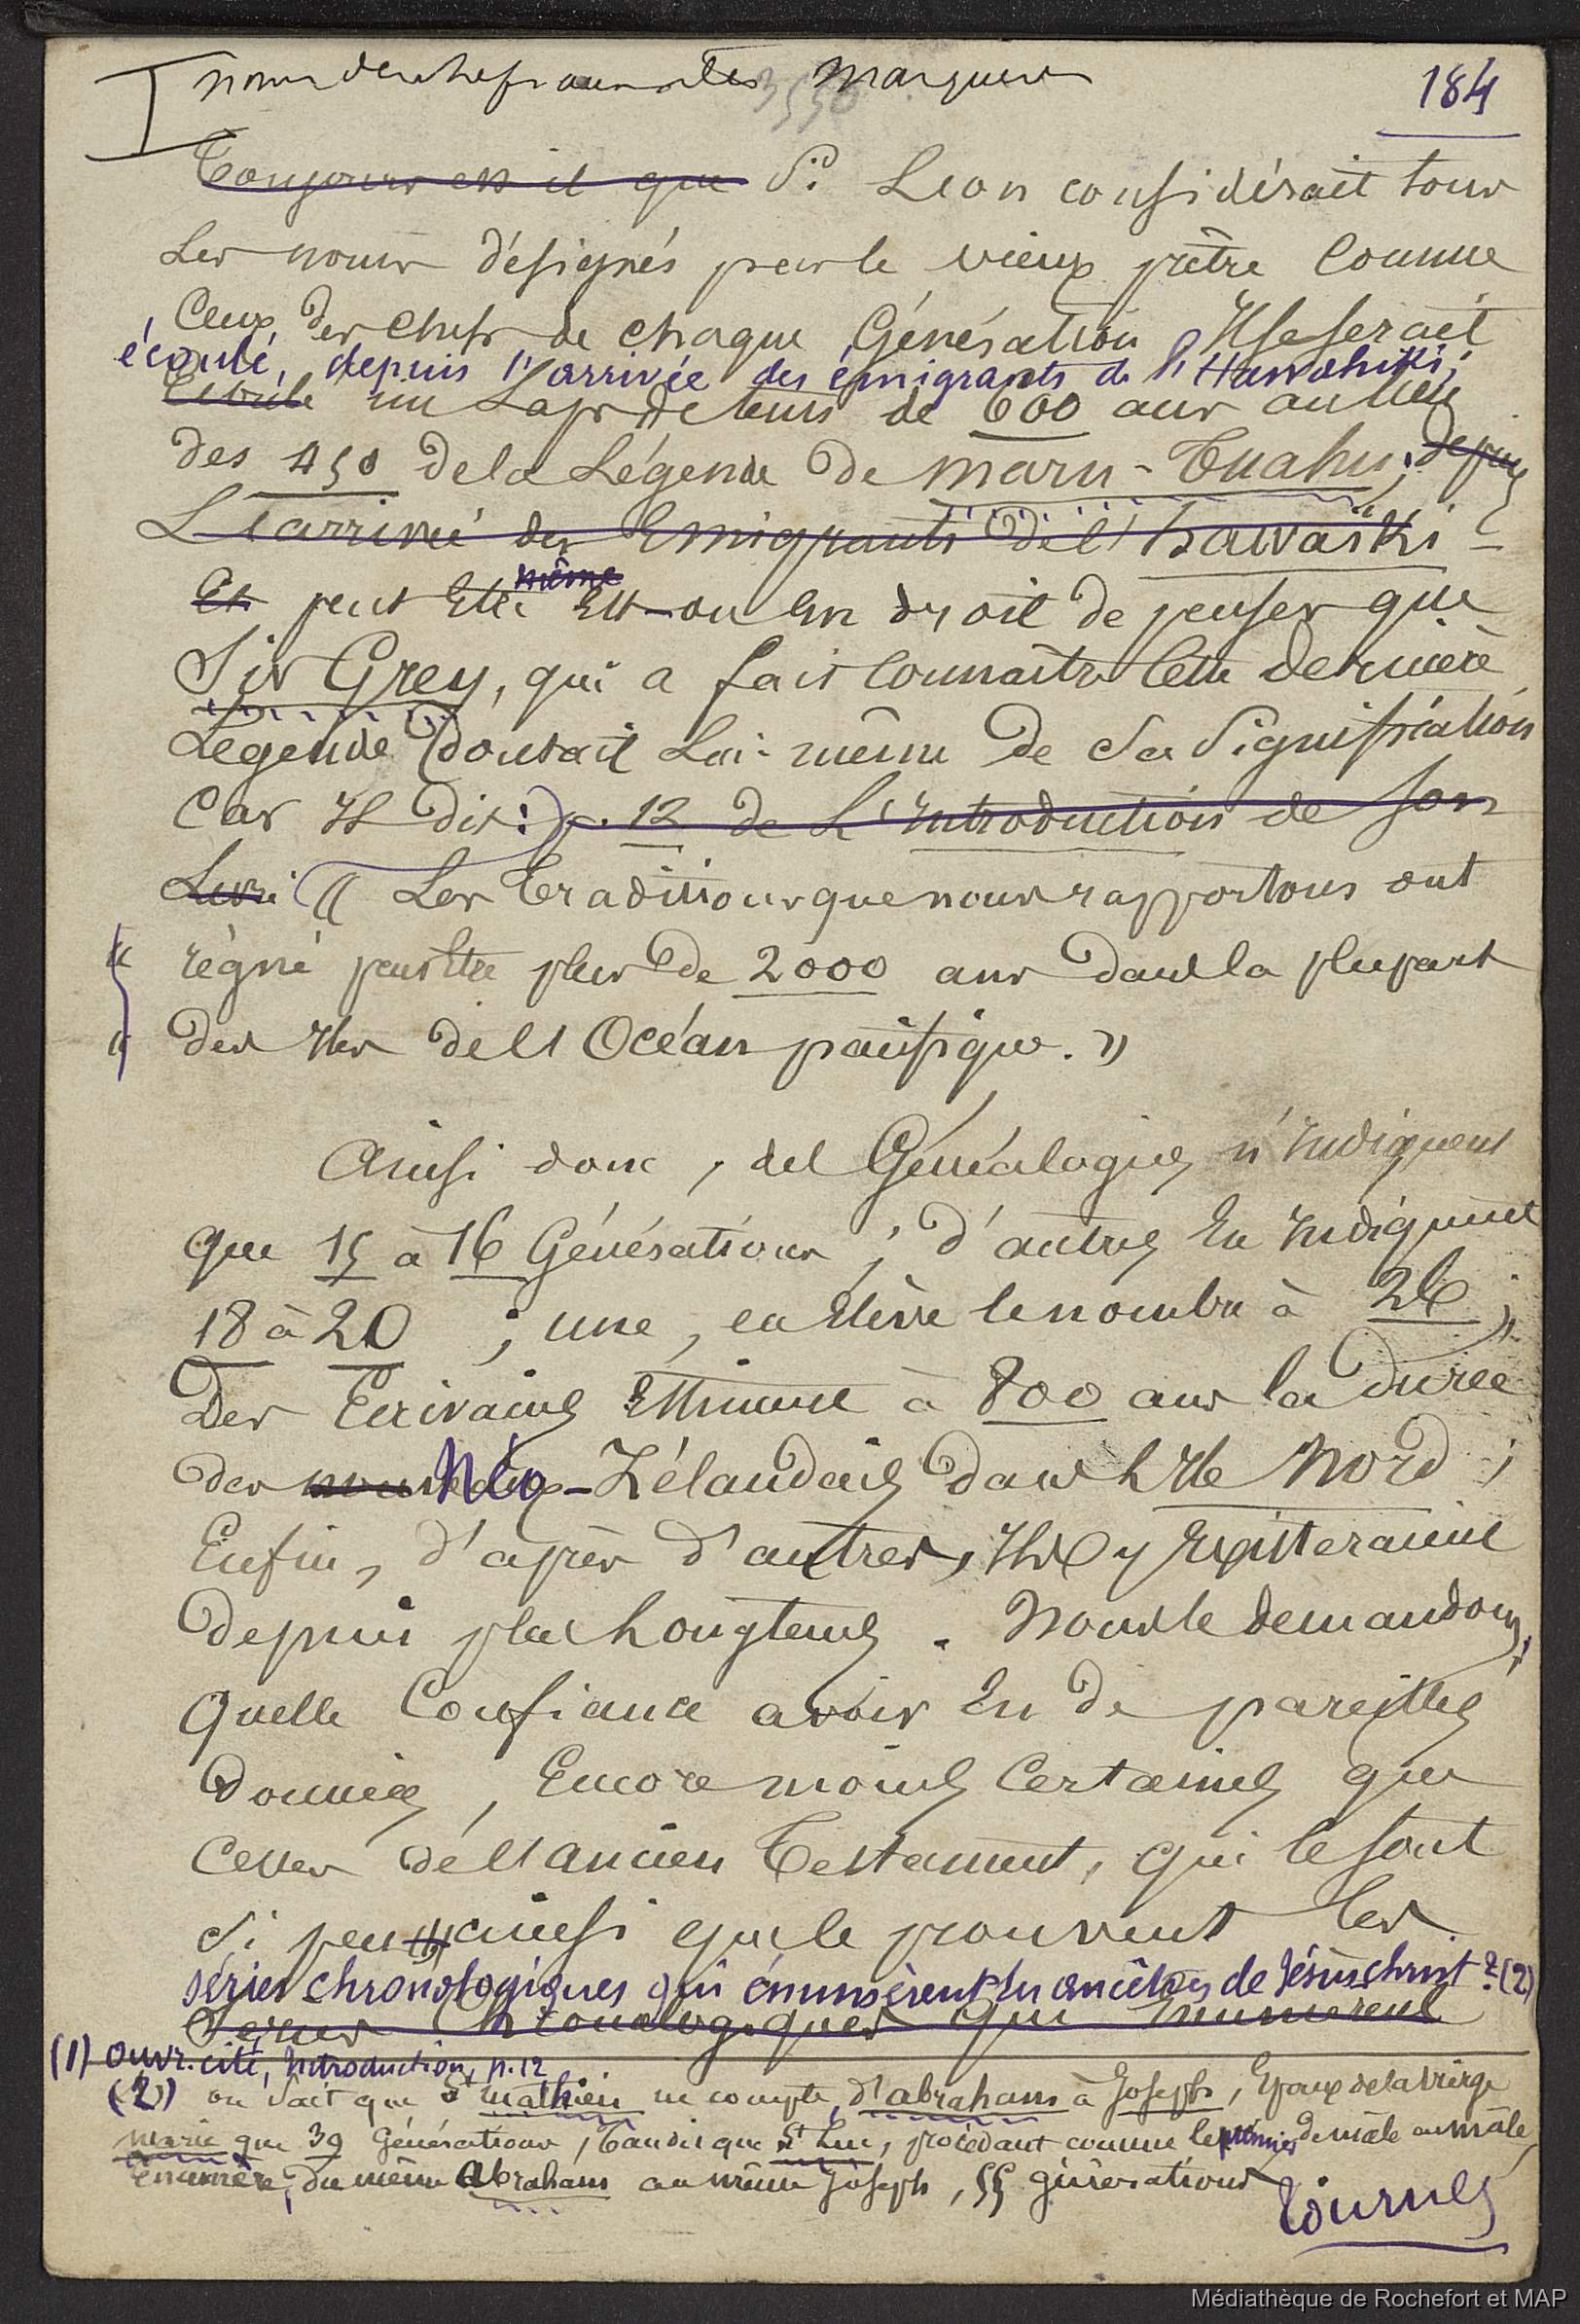 184
3550
~~Toujours est il que~~ Si Leon considérait tous
Les noms désignés par le vieux prêtre comme
Ceux des Chefs de chaque Génération Il se serait
écoulé, depuis l'arrivée des émigrants de l'Hawahiki,
~~Ecoulé~~ un Laps de tems de 600 ans au lieu
des 450 de la Légende de Maru-Tuahu; ~~depuis~~
~~L'arrivée des Emigrants de l'hawaïki~~ -
~~Et~~ peut Etre ~~même~~ Est-on En droit de penser que
Sir Grey, qui a fait Connaître Cette dernière
Légende doutait Lui-même de Sa Signification
Car Il dit: ~~p. 12 de L'Introduction de son~~
~~Livre~~ « Les Traditions que nous rapportons ont
« règné peut être plus de 2000 ans dans la plupart
« des Iles de l'Océan pacifique. »
Ainsi donc, des Généalogies n'Indiquent
que 15 à 16 Générations; d'autres En Indiquent
18 à 20; une, en élève le nombre à 26;
Des Ecrivains Estiment à 800 ans la durée
des ~~nouveaux~~ Néo-Zélandais dans L'Ile Nord;
Enfin, d'après d'autres, Ils y Existeraient
depuis plus Longtems. Nous le demandons,
Quelle Confiance avoir En de pareilles
données, Encore moins Certaines que
Celles de l'ancien Testament, qui le sont
Si peu ainsi que le prouvent les
séries chronologiques qui énumèrent les ancêtres de Jésus christ? (2)
~~Series Chronologiques qui Enumerent~~
(1) Ouvr. cité, Introduction, p. 12
(2) on Sait que St mathieu ne compte, d'abraham à Joseph, Epoux de la vierge
marie que 39 Générations, Tandis que St Luc, procédant comme le premier de mâle en mâle,
énumère, du même Abraham au même Joseph, 55 générations
Tournez
Médiathèque de Rochefort et MAP